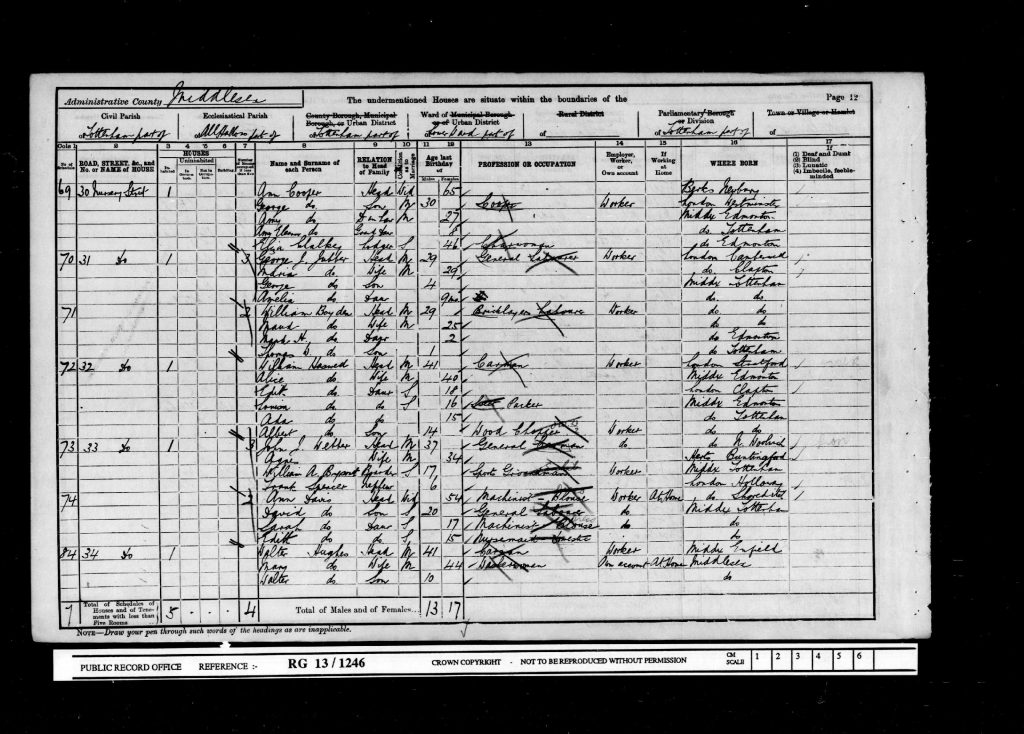 Administrative County Middlesex The undermentioned Houses are situate within the boundaries of the Page 12
Civil Parish Ecclesiastical Parish County Borough, Municipal Borough, or Urban District Ward of Municipal Borough or of Urban District Rural District Parliamentary Borough or Division Town or Village or Hamlet
of Tottenham part of of All Hallows pt of of Tottenham part of pt of of of Tottenham part of of
Cols 1 2 3 4 5 6 7 8 9 10 11 12 13 14 15 16 17
No. of Schedule ROAD, STREET, &c., and No. or NAME of HOUSE HOUSES Inhabited Uninhabited In Occupation Not in Occupation Building Name and Surname of each Person RELATION to Head of Family Condition as to Marriage Age last Birthday of Males Females PROFESSION OR OCCUPATION Employer, Worker, or Own account If Working at Home WHERE BORN If (1) Deaf and Dumb (2) Blind (3) Lunatic (4) Imbecile, feeble-minded
69 30 Nursery Street 1 Ann Cooper Head Wid 65 Berks Newbury
George do Son M 30 Worker London Westminster
Amy do M 27 Middx Edmonton
8 do Tottenham
Eliza Chalkley Lodger S 46 Charwoman do Edmonton
70 31 do 1 3 George J. Head M 29 General Labourer Worker London
Maria do Wife M 29 do Clapton
George do Son 4 Middx Tottenham
Amelia do Daur 9 mo do do
71 2 William Boyden Head M 29 Bricklayers Labourer Worker do do
Maud do Wife M 25 do do
do Daur 2 do Edmonton
Thomas do Son 1 do Tottenham
72 32 do 1 William Head M 41 Carman Worker London Stratford
Alice do Wife M 40 Middx Edmonton
Edith do Daur S 18 London Clapton
Louisa do do S 16 Packer Middx Edmonton
Ada do do 15 do Tottenham
Albert do Son 14 Wood Chopper Worker do do
73 33 do 1 3 John J Webber Head M 37 General Labourer do do
Wife M 34 Herts Buntingford
William A Bryant Boarder S 17 Sports Groundman Worker Middx Tottenham
Spencer Nephew 6 London Holloway
74 2 Ann Davis Head Wid 54 Machinist - Blouse Worker At Home do Shoreditch
David do Son S 20 General Labourer do Middx Tottenham
Sarah do Daur S 17 Machinist Blouse do do
Edith do do S 15 Nursemaid Domestic do do
84 34 do 1 Walter Hughes Head M 41 Carman Worker Middx Enfield
Mary do Wife M 44 Own account At Home Middlesex
Walter do Son 10 do
7 Total of Schedules of Houses and of Tenements with less than Five Rooms 5 4 Total of Males and of Females... 13 17
NOTE—Draw your pen through such words of the headings as are inapplicable.
PUBLIC RECORD OFFICE REFERENCE :- RG 13 / 1246 CROWN COPYRIGHT - NOT TO BE REPRODUCED WITHOUT PERMISSION CM SCALE 1 2 3 4 5 6